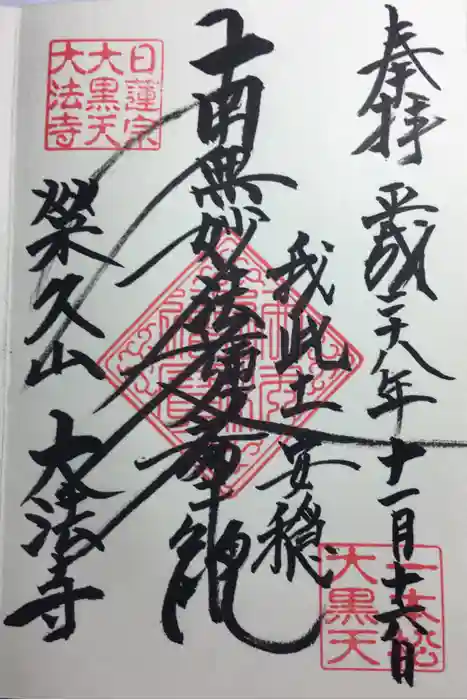 奉拝
平成二十八年十一月十六日
我此土安穏
南無妙法蓮華経
日蓮宗
大黒天
大法寺
榮久山 大法寺
一本松
大黒天